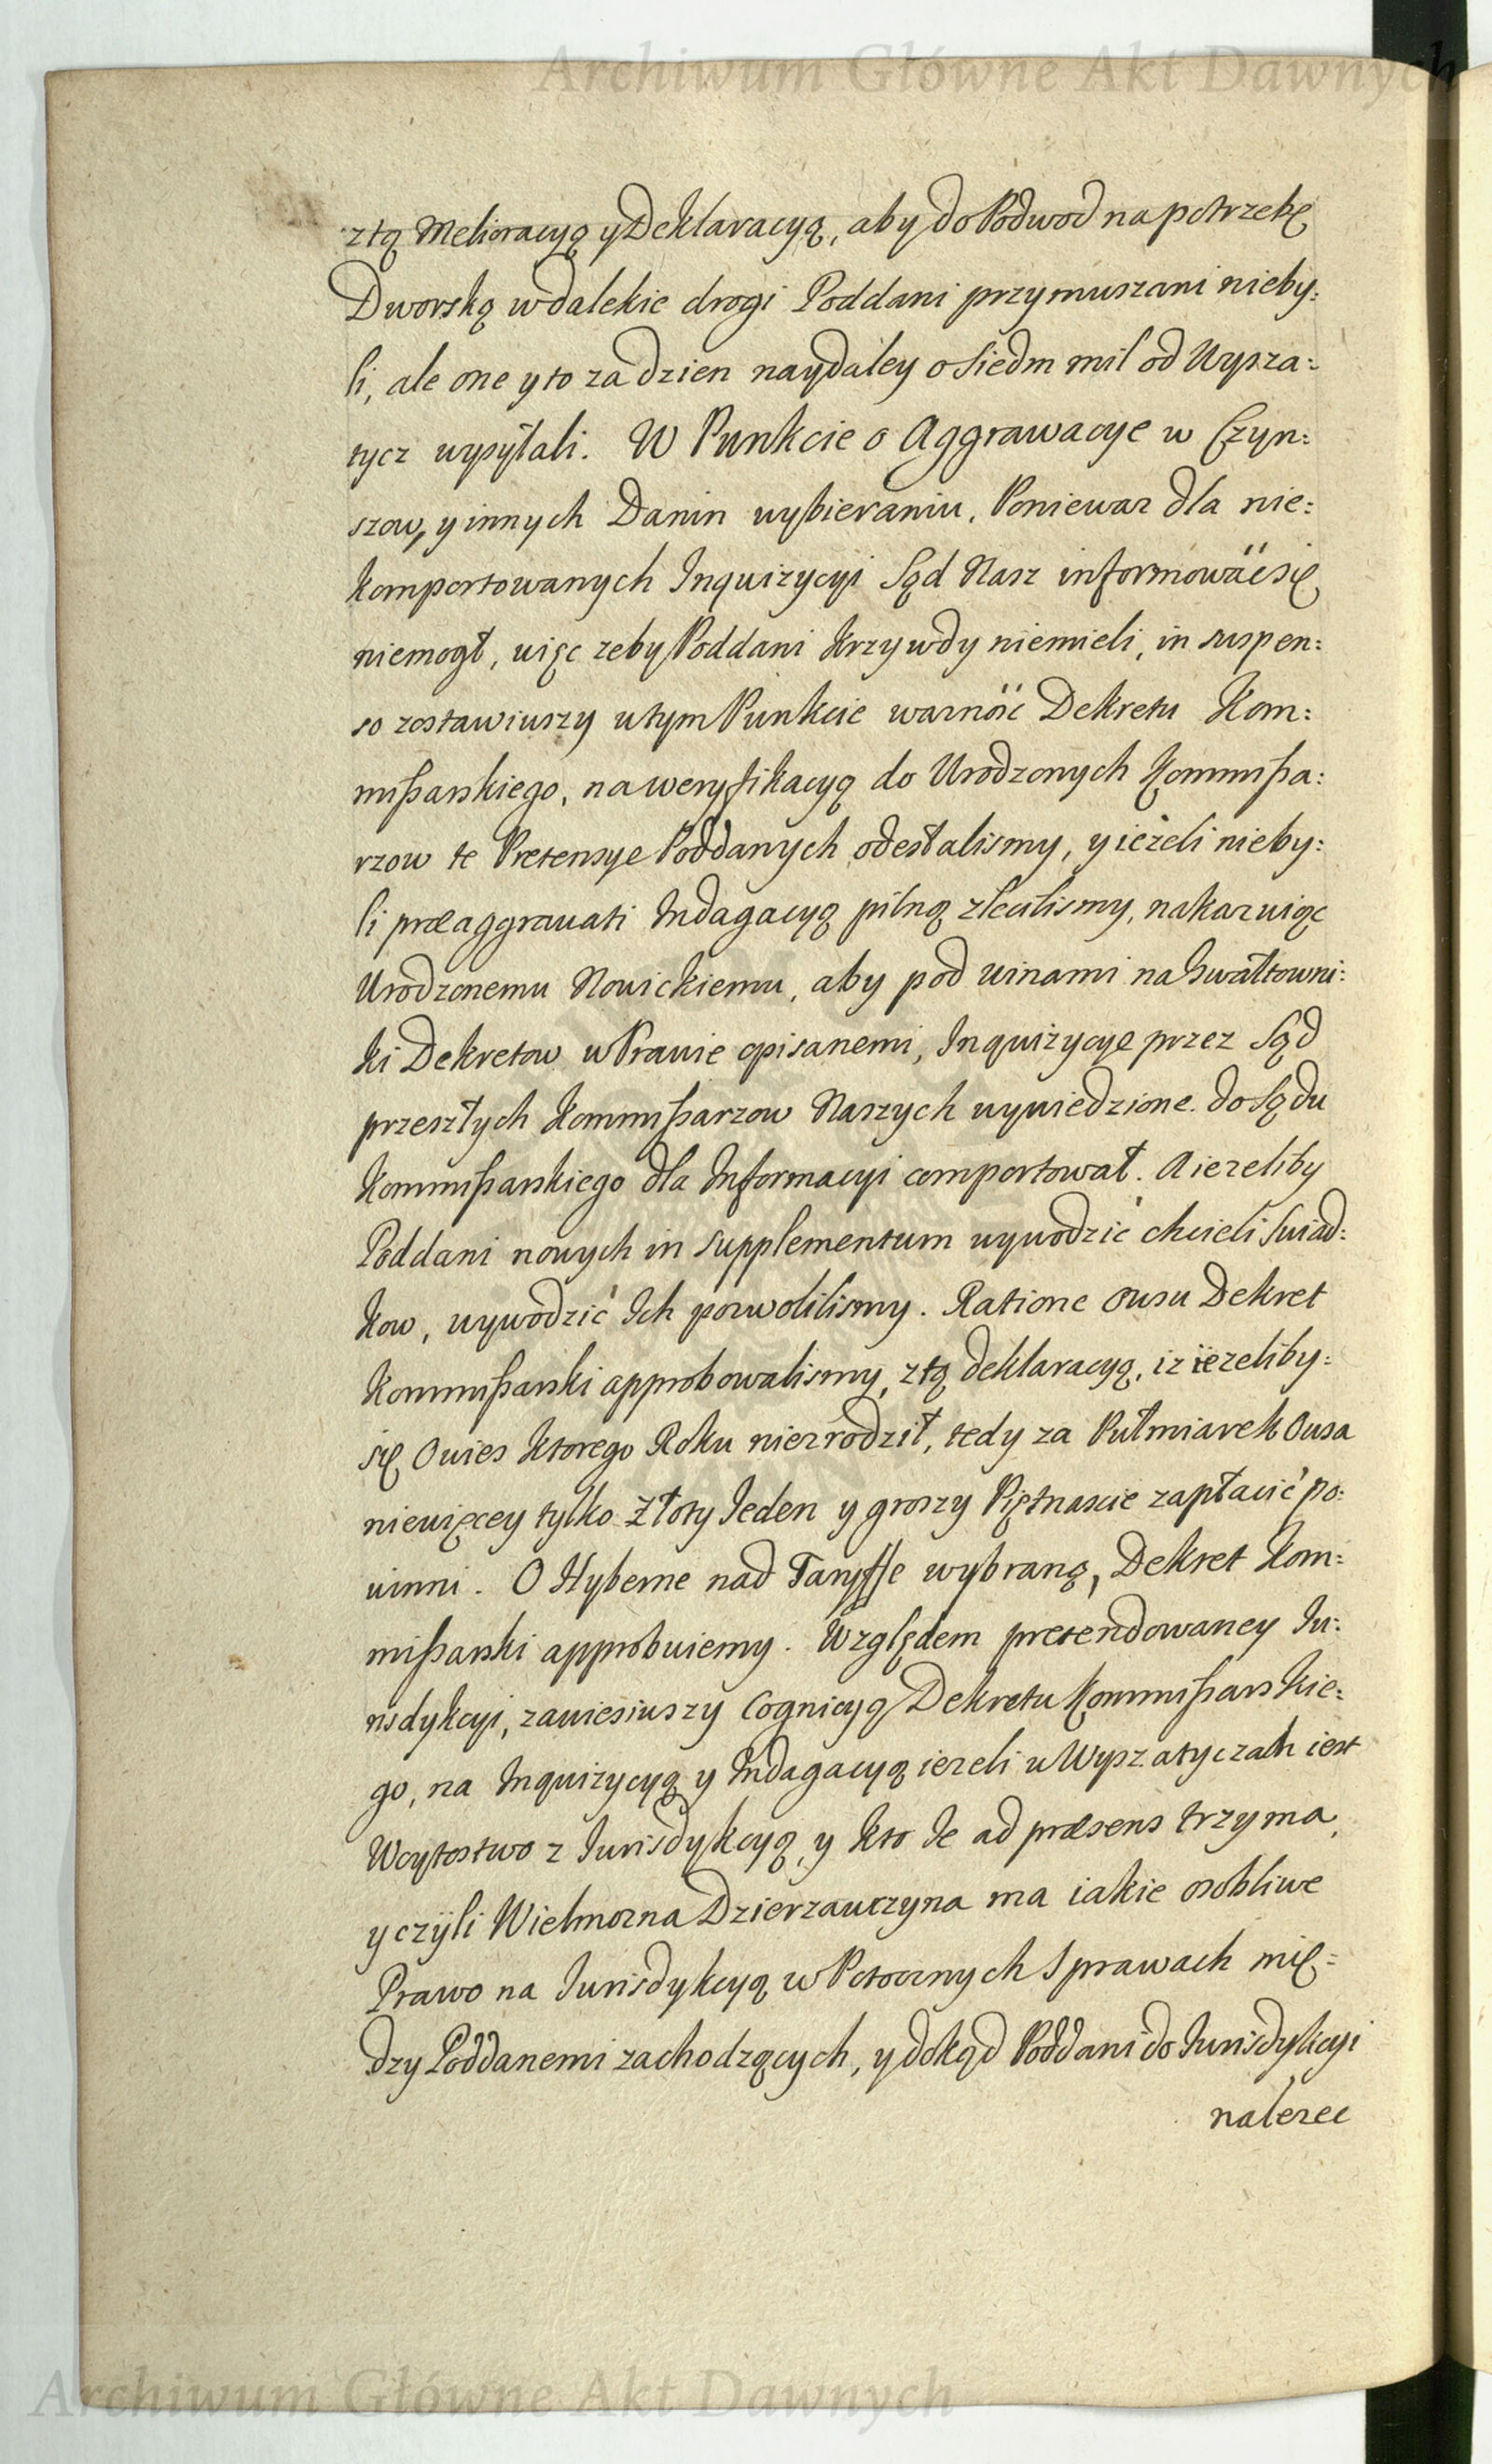 Archiwum Główne Akt Dawnych
z tą Melioracyą y Deklaracyą, aby do Podwod na potrzebę
Dworską w dalekie drogi Poddani przymuszani nieby:
li, ale one y to za dzien naydaley o Siedm mil od Wysza:
tycz wysyłali. W Punkcie o Aggrawacye w Czyn:
szow, y innych Danin wybieraniu, Poniewaz dla nie:
komportowanych Inquizycyi Sąd Nasz informowac się
niemogł, więc zeby Poddani krzywdy niemieli, in suspen:
so zostawiwszy w tym Punkcie waznosc Dekretu Kom:
mißarskiego, na weryfikacyą do Urodzonych Kommißa:
rzow te Pretensye Poddanych odesłalismy, y ieżeli nieby:
li præaggravati Indagacyą pilną zlecilismy, nakazuiąc
Urodzonemu Nowickiemu, aby pod winami na Gwałtowni:
ki Dekretow w Prawie opisanemi, Inquizycye przez Sąd
przeszłych Kommißarzow Naszych wywiedzione do Sądu
Kommißarskiego dla Informacyi comportował. A iezeliby
Poddani nowych in supplementum wywodzić chcieli Swiad:
kow, wywodzić Ich pozwolilismy. Ratione Owsu Dekret
Kommißarski approbowalismy, z tą deklaracyą, iz iezeliby:
się Owies ktorego Roku niezrodził, tedy za Pułmiarek Owsa
niewięcey tylko Złoty Jeden y groszy Piętnascie zapłacić po:
winni. O Hyberne nad Taryffe wybraną, Dekret Kom:
mißarski approbuiemy. Względem pretendowaney Iu:
risdykcyi, zawiesiwszy Cognicyą Dekretu Kommißarskie:
go, na Inquizycyą y Indagacyą iezeli w Wyszatyczach iest
Woytostwo z Iurisdykcyą, y kto Je ad præsens trzyma,
y czyli Wielmozna Dzierzawczyna ma iakie osobliwe
Prawo na Iurisdykcyą w Potocznych Sprawach mię:
dzy Poddanemi zachodzących, y dokąd Poddani do Iurisdykcyi
nalezec
Archiwum Główne Akt Dawnych